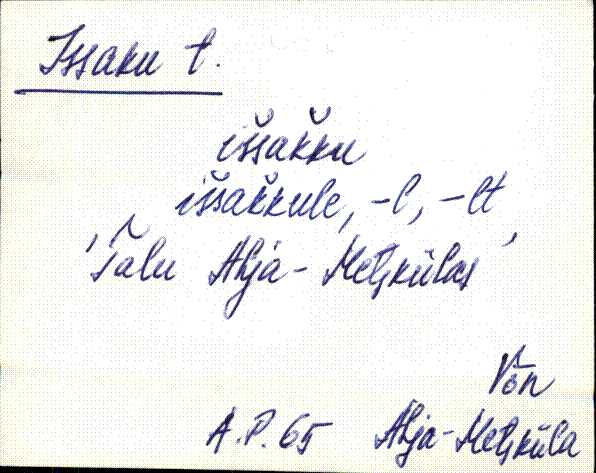 Issaku t.
išsaǩku
išsaǩkule, -l, -lt
'Talu Ahja-Metskülas'
Võn
A.P. 65 Ahja-Metsküla